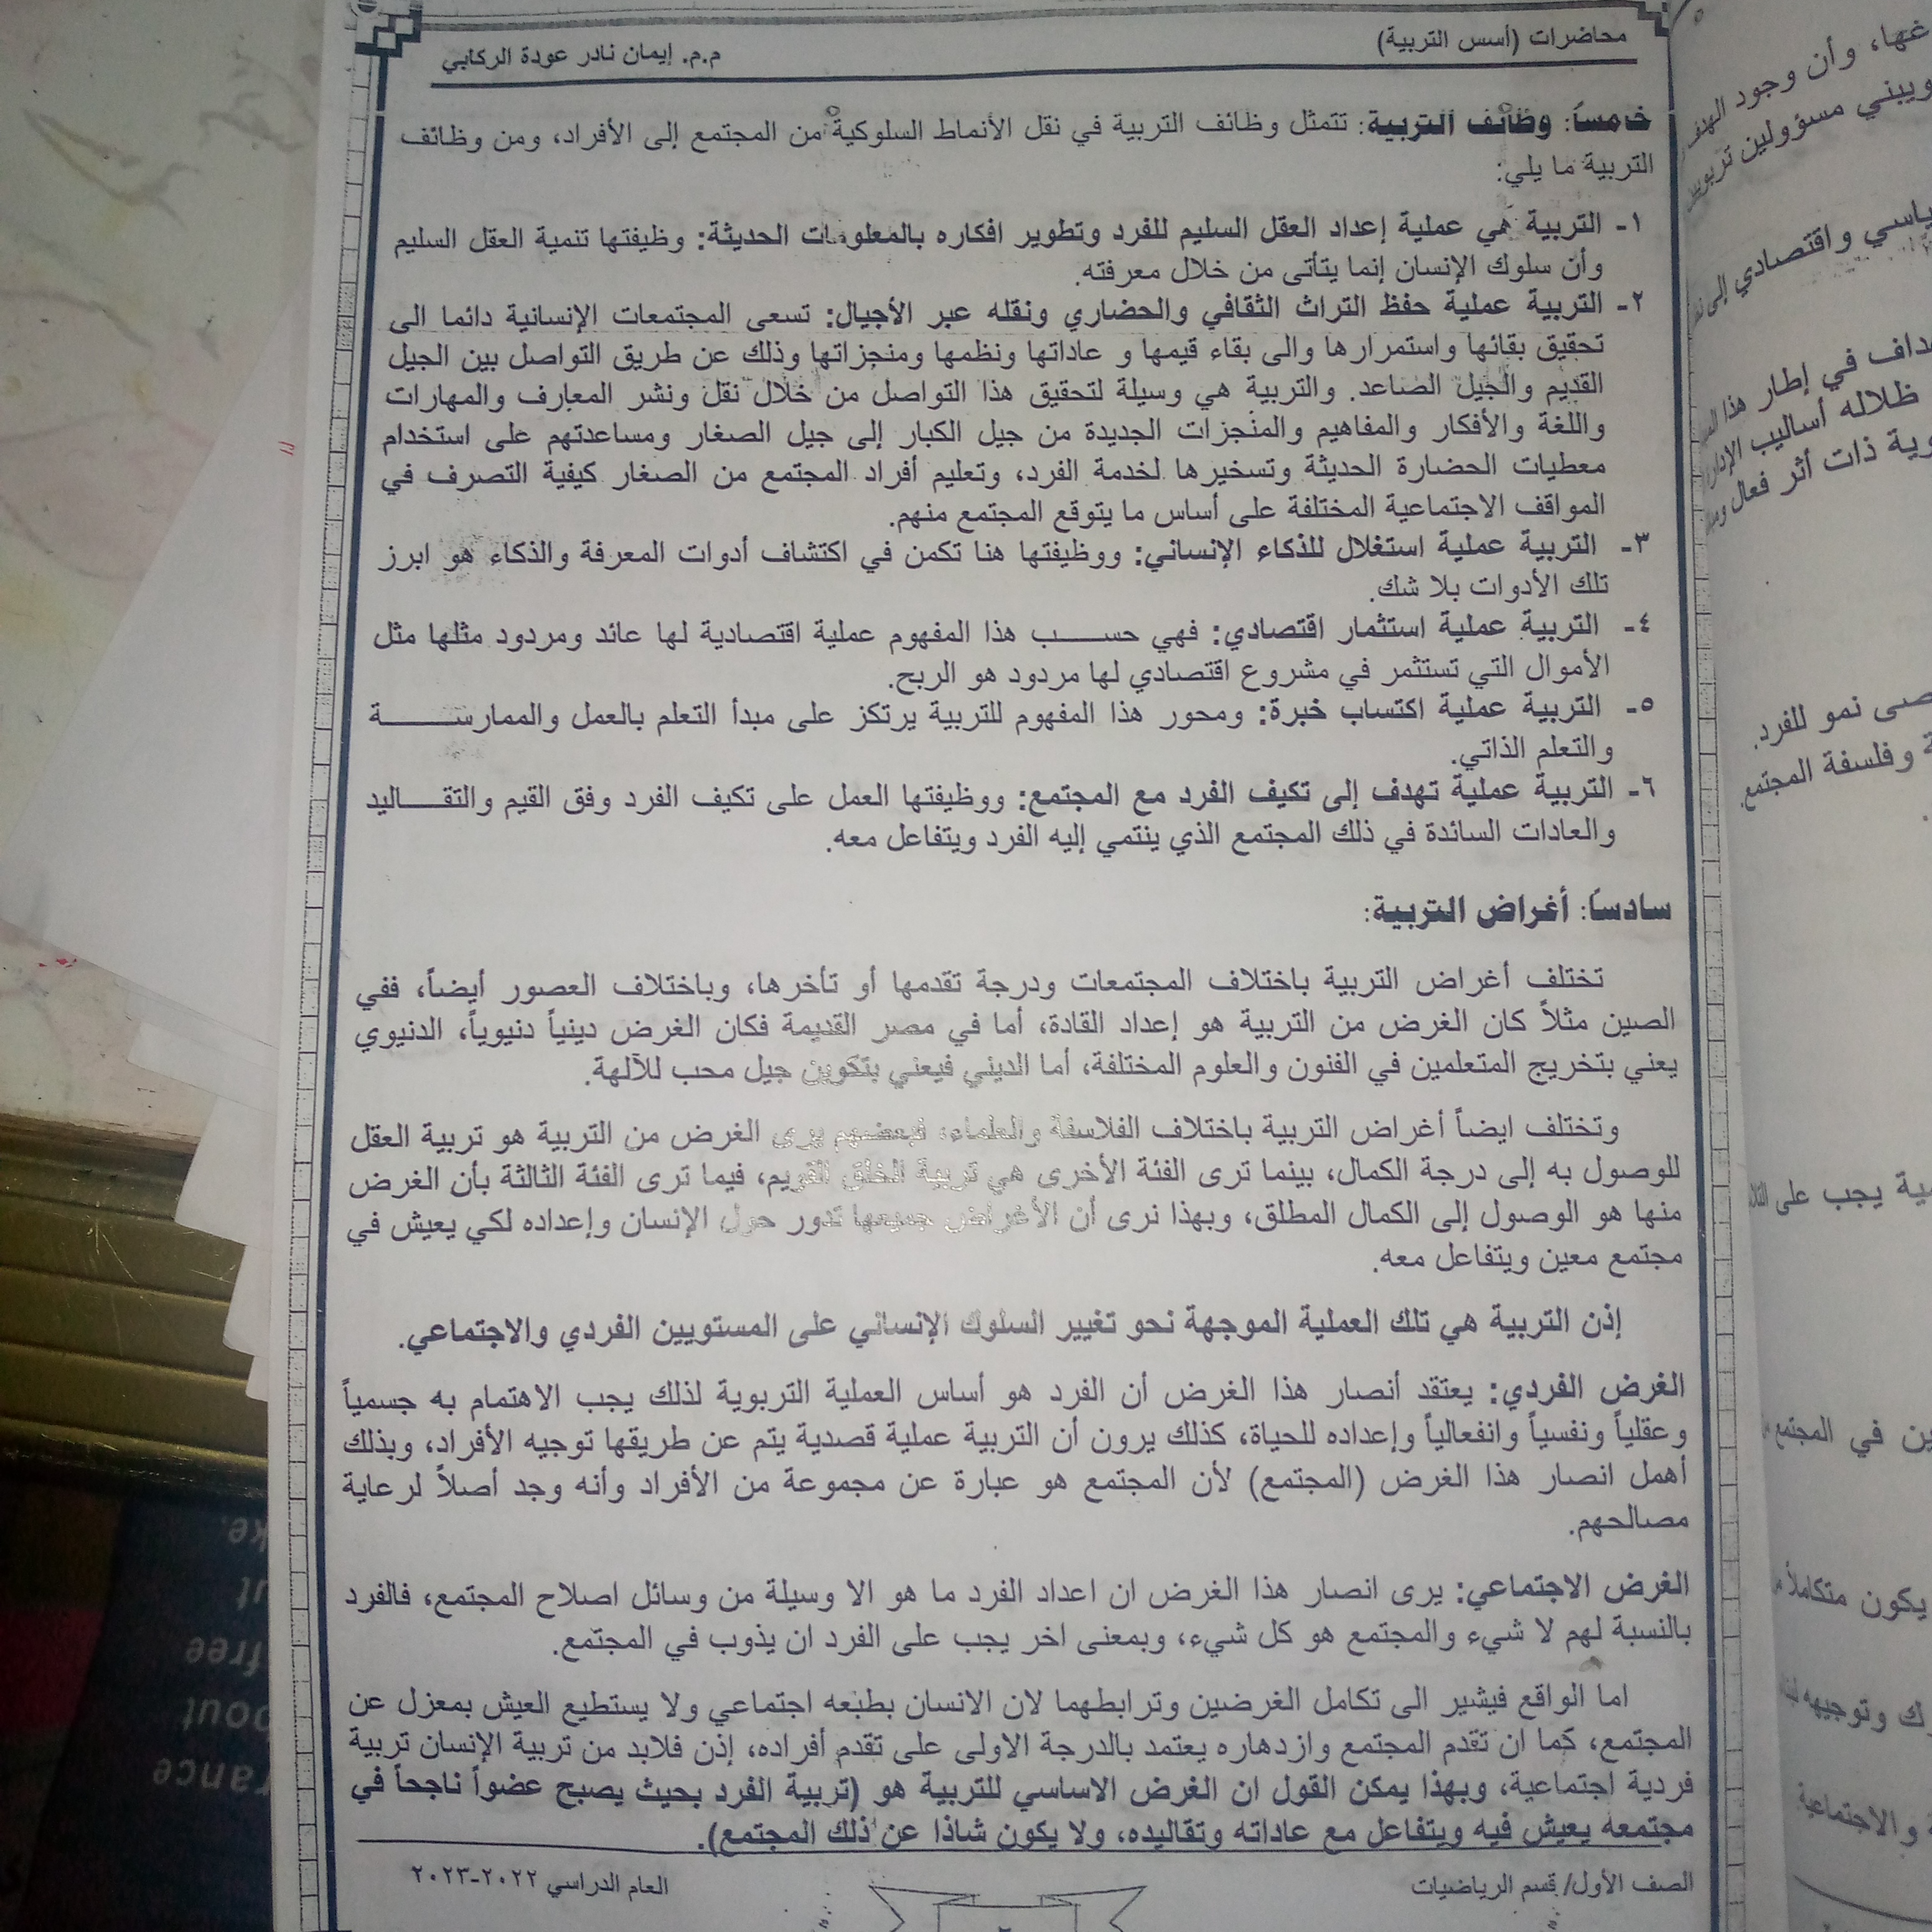 محاضرات (أسس التربية)
م.م. إيمان نادر عودة الركابي
خامساً: وظائف التربية: تتمثل وظائف التربية في نقل الأنماط السلوكية من المجتمع إلى الأفراد، ومن وظائف
التربية ما يلي:
١- التربية هي عملية إعداد العقل السليم للفرد وتطوير افكاره بالمعلومات الحديثة: وظيفتها تنمية العقل السليم
وأن سلوك الإنسان إنما يتأتى من خلال معرفته.
٢- التربية عملية حفظ التراث الثقافي والحضاري ونقله عبر الأجيال: تسعى المجتمعات الإنسانية دائما الى
تحقيق بقائها واستمرارها والى بقاء قيمها و عاداتها ونظمها ومنجزاتها وذلك عن طريق التواصل بين الجيل
القديم والجيل الصاعد. والتربية هي وسيلة لتحقيق هذا التواصل من خلال نقل ونشر المعارف والمهارات
واللغة والأفكار والمفاهيم والمنجزات الجديدة من جيل الكبار إلى جيل الصغار ومساعدتهم على استخدام
معطيات الحضارة الحديثة وتسخيرها لخدمة الفرد، وتعليم أفراد المجتمع من الصغار كيفية التصرف في
المواقف الاجتماعية المختلفة على أساس ما يتوقع المجتمع منهم.
٣- التربية عملية استغلال للذكاء الإنساني: ووظيفتها هنا تكمن في اكتشاف أدوات المعرفة والذكاء هو ابرز
تلك الأدوات بلا شك.
٤- التربية عملية استثمار اقتصادي: فهي حســـب هذا المفهوم عملية اقتصادية لها عائد ومردود مثلها مثل
الأموال التي تستثمر في مشروع اقتصادي لها مردود هو الربح.
٥- التربية عملية اكتساب خبرة: ومحور هذا المفهوم للتربية يرتكز على مبدأ التعلم بالعمل والممارســـــة
والتعلم الذاتي.
٦- التربية عملية تهدف إلى تكيف الفرد مع المجتمع: ووظيفتها العمل على تكيف الفرد وفق القيم والتقـــاليد
والعادات السائدة في ذلك المجتمع الذي ينتمي إليه الفرد ويتفاعل معه.
سادساً: أغراض التربية:
تختلف أغراض التربية باختلاف المجتمعات ودرجة تقدمها أو تأخرها، وباختلاف العصور أيضاً، ففي
الصين مثلاً كان الغرض من التربية هو إعداد القادة، أما في مصر القديمة فكان الغرض دينياً دنيوياً، الدنيوي
يعني بتخريج المتعلمين في الفنون والعلوم المختلفة، أما الديني فيعني بتكوين جيل محب للآلهة.
وتختلف ايضاً أغراض التربية باختلاف الفلاسفة والعلماء، فبعضهم يرى الغرض من التربية هو تربية العقل
للوصول به إلى درجة الكمال، بينما ترى الفئة الأخرى هي تربية الخلق القويم، فيما ترى الفئة الثالثة بأن الغرض
منها هو الوصول إلى الكمال المطلق، وبهذا نرى أن الأغراض جميعها تدور حول الإنسان وإعداده لكي يعيش في
مجتمع معين ويتفاعل معه.
إذن التربية هي تلك العملية الموجهة نحو تغيير السلوك الإنساني على المستويين الفردي والاجتماعي.
الغرض الفردي: يعتقد أنصار هذا الغرض أن الفرد هو أساس العملية التربوية لذلك يجب الاهتمام به جسمياً
وعقلياً ونفسياً وانفعالياً وإعداده للحياة، كذلك يرون أن التربية عملية قصدية يتم عن طريقها توجيه الأفراد، وبذلك
أهمل انصار هذا الغرض (المجتمع) لأن المجتمع هو عبارة عن مجموعة من الأفراد وأنه وجد أصلاً لرعاية
مصالحهم.
الغرض الاجتماعي: يرى انصار هذا الغرض ان اعداد الفرد ما هو الا وسيلة من وسائل اصلاح المجتمع، فالفرد
بالنسبة لهم لا شيء والمجتمع هو كل شيء، وبمعنى اخر يجب على الفرد ان يذوب في المجتمع.
اما الواقع فيشير الى تكامل الغرضين وترابطهما لان الانسان بطبعه اجتماعي ولا يستطيع العيش بمعزل عن
المجتمع، كما ان تقدم المجتمع وازدهاره يعتمد بالدرجة الاولى على تقدم أفراده، إذن فلابد من تربية الإنسان تربية
فردية اجتماعية، وبهذا يمكن القول ان الغرض الاساسي للتربية هو (تربية الفرد بحيث يصبح عضواً ناجحاً في
مجتمعه يعيش فيه ويتفاعل مع عاداته وتقاليده، ولا يكون شاذا عن ذلك المجتمع).
الصف الأول/ قسم الرياضيات
العام الدراسي ٢٠٢٢-٢٠٢٣
وأن وجود
ويبني مسؤولين
واقتصادي إلى
في إطار هذا
ظلاله أساليب
ذات أثر فعال
نمو للفرد.
وفلسفة المجتمع
يجب على
في المجتمع
يكون متكاملاً
وتوجيهه
والاجتماعية
free